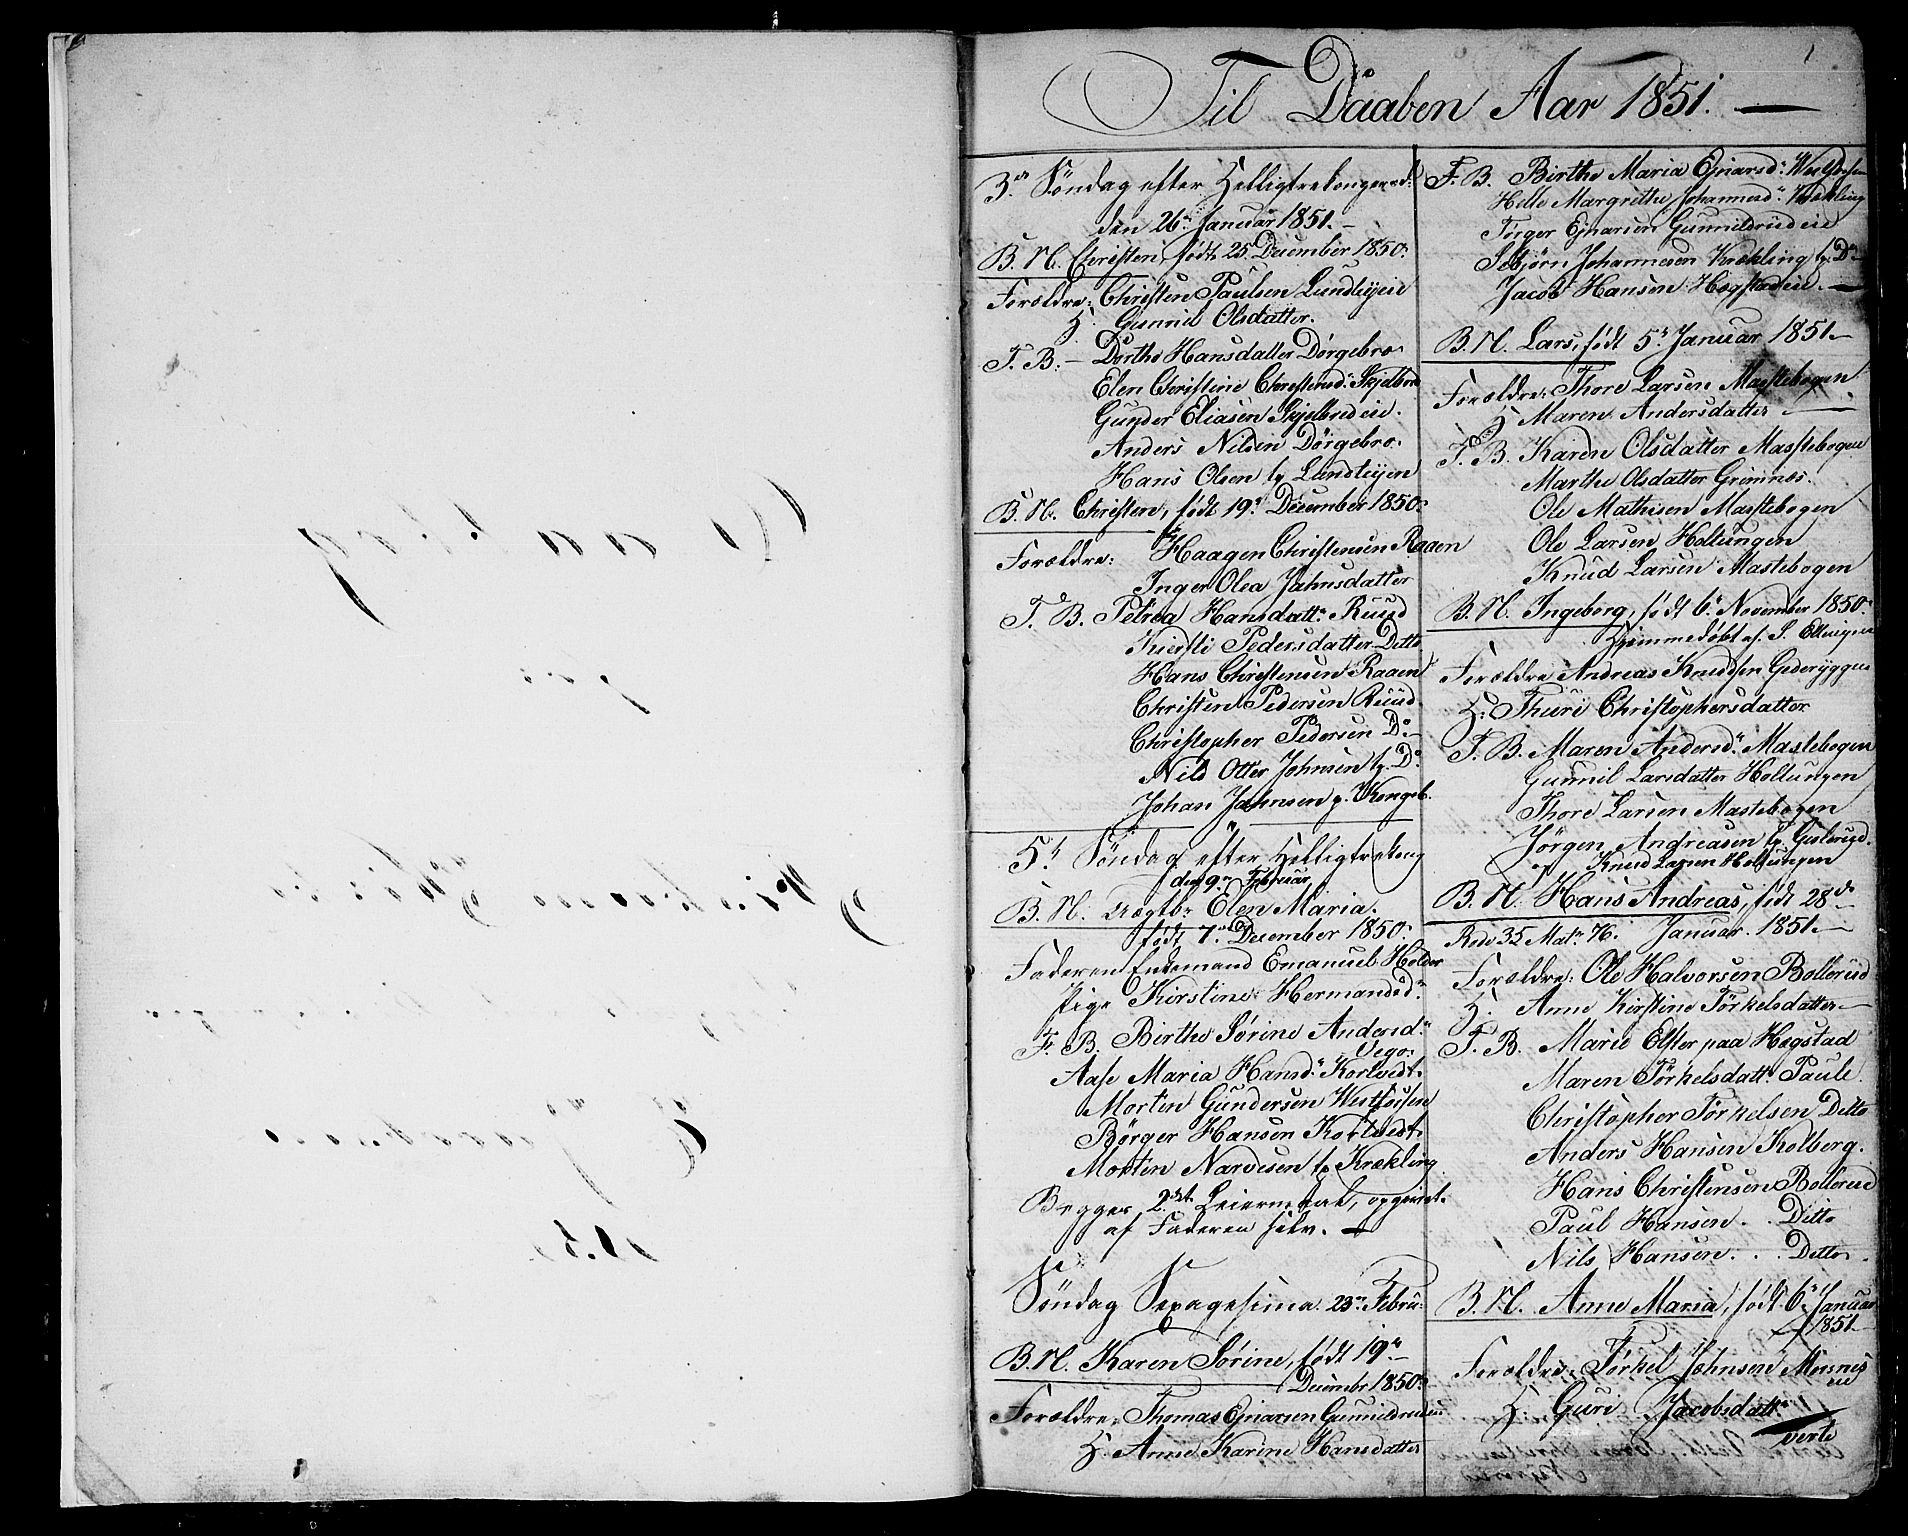 1
Til Daaben Aar 1851. —
3de Söndag efter Helligtrekongersd:
den 26de Januar 1851. —
B. N. Christen, födt 25. December 1850.
Forældre: Christen Paulsen Lundteieie
H. Gunnil Olsdatter.
F. B. — Dorthe Hansdatter Dørgebro
Elen Christine Christensd. Skjelbred
Gunder Eliasen Skjelbredeie.
Anders Nilsen Dørgebro.
Hans Olsen Lundteijen
B. N. Christen, födt 19. December 1850.
Forældre: Haagen Christensen Raaen
Inger Olea Jahnsdatter
F. B. Petrea Hansdatt. Ruud
Kiersti Pedersdatter Ditto
Hans Christensen Raaen
Christen Pedersen Ruud
Christopher Pedersen Do —
Nils Otter Johnsen Do
Johan Jahnsen Kongsb.
5te Söndag efter Helligtrekong
den 9de Februar
B. N. Uægtb. Elen Maria.
födt 7. December 1850.
Faderen Enkemand Emanuel Holder
Pige Kirstine Hermandsd.
F. B. Birthe Sörine Andersd.
Aase Maria Hansd. Kortvedt
Morten Gundersen Vestfossen
Börger Hansen Kortvedt
Morten Narvesen Krækling
Begges 2det Leiermaal, opgivet
af Faderen selv. —
Söndag Sexagesima 23de Febru.
B. N. Karen Sörine, födt 19de
Decembr 1850.
Forældre: Thomas Ejnarsen Gunnildrudeie
H. Anne Karine Hansdatter
F. B. Birthe Maria Ejnarsd.
Helle Margrethe Johannesd. Krækling
Törger Ejnarsen Gunnildrudeie
Johannesen Krækling Do
Jacob Hansen Hogstadeie. —
B. N. Lars, födt 5. Januar 1851. —
Forældre: Thore Larsen Mastebogen
H. Maren Andersdatter —
F. B. Karen Olsdatter Mastebogen
Marthe Olsdatter Grimnes.
Ole Mathisen Mastebogen
Ole Larsen Holtungen
Knud Larsen Mastebogen
B. N. Ingeborg, födt 6. November 1850.
Hjemmedöbt af S.
Forældre Andreas Knudsen Gederyggen
H. Thuri Christophersdatter
F. B. Maren Andersd. Mastebogen
Gunnil Larsdatter Holtungen
Thore Larsen Mastebogen
Jörgen Andreasen
og Knud Larsen Holtungen
B. N. Hans Andreas, födt 28de
Rode 35 Mat. 76. Januar 1851. —
Forældre: Ole Halvorsen Bollerud
H. Anne Kirstine Törkelsdatter —
F. B. Marie Elster paa Hogstad
Maren Törkelsdatt. Paule
Christopher Törkelsen Ditto
Anders Hansen Kolberg.
Hans Christensen Bollerud
Paul Hansen . . Ditto
Nils Hansen . . Ditto
B. N. Anne Maria, födt 6. Januar
1851. —
Forældre: Törkel Jahnsen
H. Guri Jacobsdatt.
verte